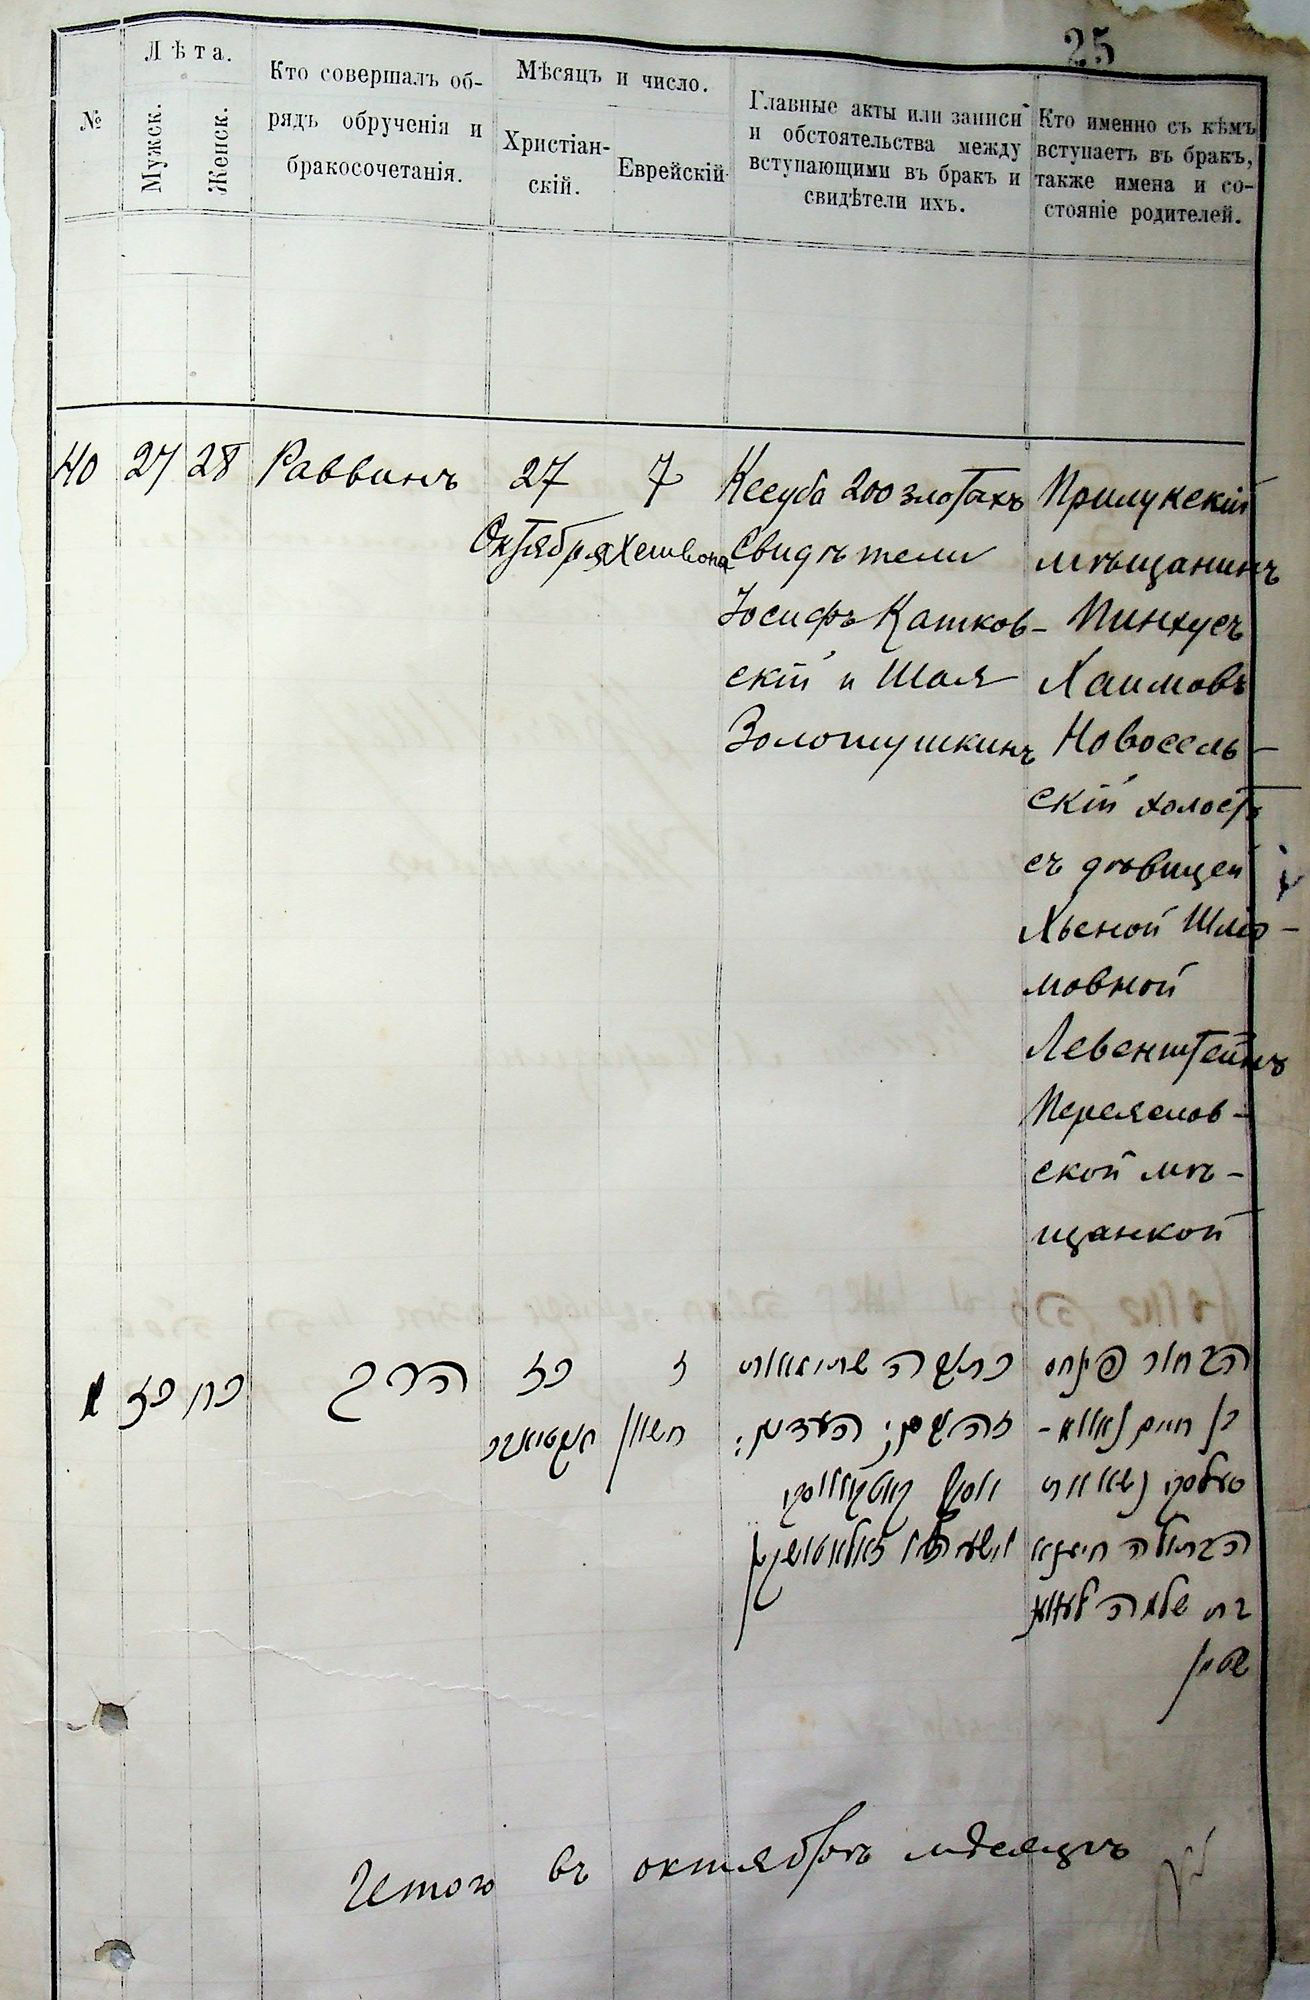 25
№
Лѣта.
Мужск.
Женск.
Кто совершалъ об-
рядъ обрученія и
бракосочетанія.
Мѣсяцъ и число.
Христіан-
скій.
Еврейскій.
Главные акты или записи
и обстоятельства между
вступающими въ бракъ и
свидѣтели ихъ.
Кто именно съ кѣмъ
вступаетъ въ бракъ,
также имена и со-
стояніе родителей.
40
27
28
Раввинъ
27
Октября
7
Хешвона
Ксеуба 200 злотахъ
Свидѣтели
Іосифъ Катков-
скій и Шая
Золотушкинъ
Прилукскій
мѣщанинъ
Пинхусъ
Хаимовъ
Новосель-
скій холостъ
съ дѣвицей
Хьеной Шліо-
мовной
Левенштейнъ
Переяслов-
ской мѣ-
щанкой
מ
כז
כח
הרב
כז
ז
חשון
כתובה
העדים:
יוסף
הבחור פינחס
בן חיים נאווא-
סעלסקי נשא את
הבתולה חיענא
בת שלמה
שטיין
Итого въ октябрѣ мѣсяцѣ